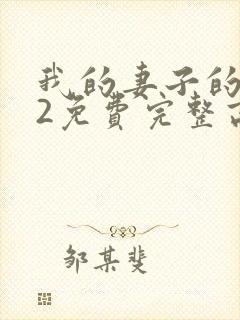 我的妻子的
2免费完整
邹某斐